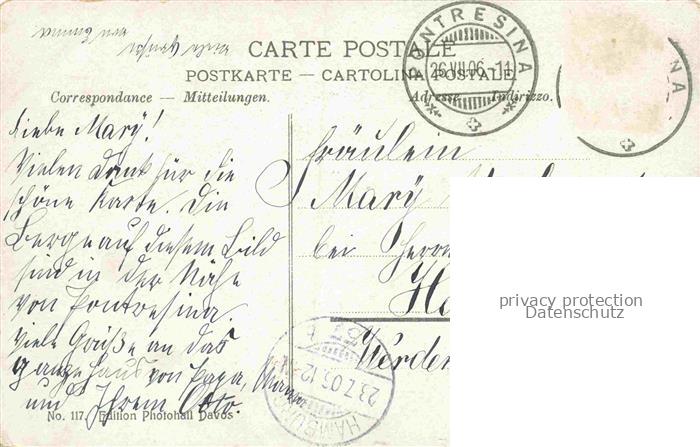 CARTE POSTALE
POSTKARTE — CARTOLINA POSTALE.
Correspondance — Mitteilungen.
Adresse Indirizzo.
PONTRESINA
26.VII.06.-11
NA
Liebe Mary!
Vielen Dank für die
schöne Karte. Die
Berge auf diesem Bild
sind in der Nähe
von Pontresina.
Viele Grüße an das
ganze Haus von Papa, Mama
und Ihrem Otto.
Fräulein
Mary
bei Herrn
Werder
HAMBURG
No. 117. Edition Photohall Davos
privacy protection
Datenschutz